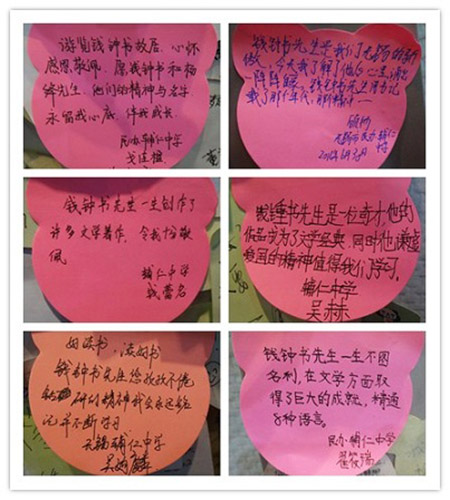 游览钱钟书故居,心怀
感恩敬师。愿钱钟书和杨
绛先生,他们的精神与名字
永留我心底,伴我成长。
民办辅仁中学
钱钟书先生是我们无锡的骄
傲,今天我了解了他的心里涌出
一阵阵
钱钟书先生用书记
载了那个年代,那种精神
无锡市民办辅仁
钱钟书先生一生创作了
许多文学著作,令我十份敬
佩
辅仁中学
钱蕾名
钱锺书先生是一位奇才他的
作品成为了文学经典,同时他谦虚
爱国的精神值得我们学习。
辅仁中学
吴赫
好读书,读好书
钱钟书先生您孜孜不倦
钻研的精神我会永远铭
记并不断学习
无锡辅仁中学
钱钟书先生一生不图
名利,在文学方面取
得了巨大的成就,精通
8种语言。
民办辅仁中学
瞿筱瑞